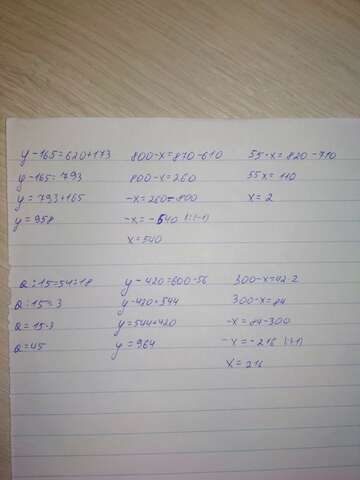 y - 165 = 620 + 173
y - 165 = 793
y = 793 + 165
y = 958
800 - x = 870 - 610
800 - x = 260
-x = 260 - 800
-x = -540 |:(-1)
x = 540
55·x = 820 - 710
55x = 110
x = 2
a : 15 = 54 : 18
a : 15 = 3
a = 15·3
a = 45
y - 420 = 600 - 56
y - 420 = 544
y = 544 + 420
y = 964
300 - x = 42·2
300 - x = 84
-x = 84 - 300
-x = -216 |:(-1)
x = 216